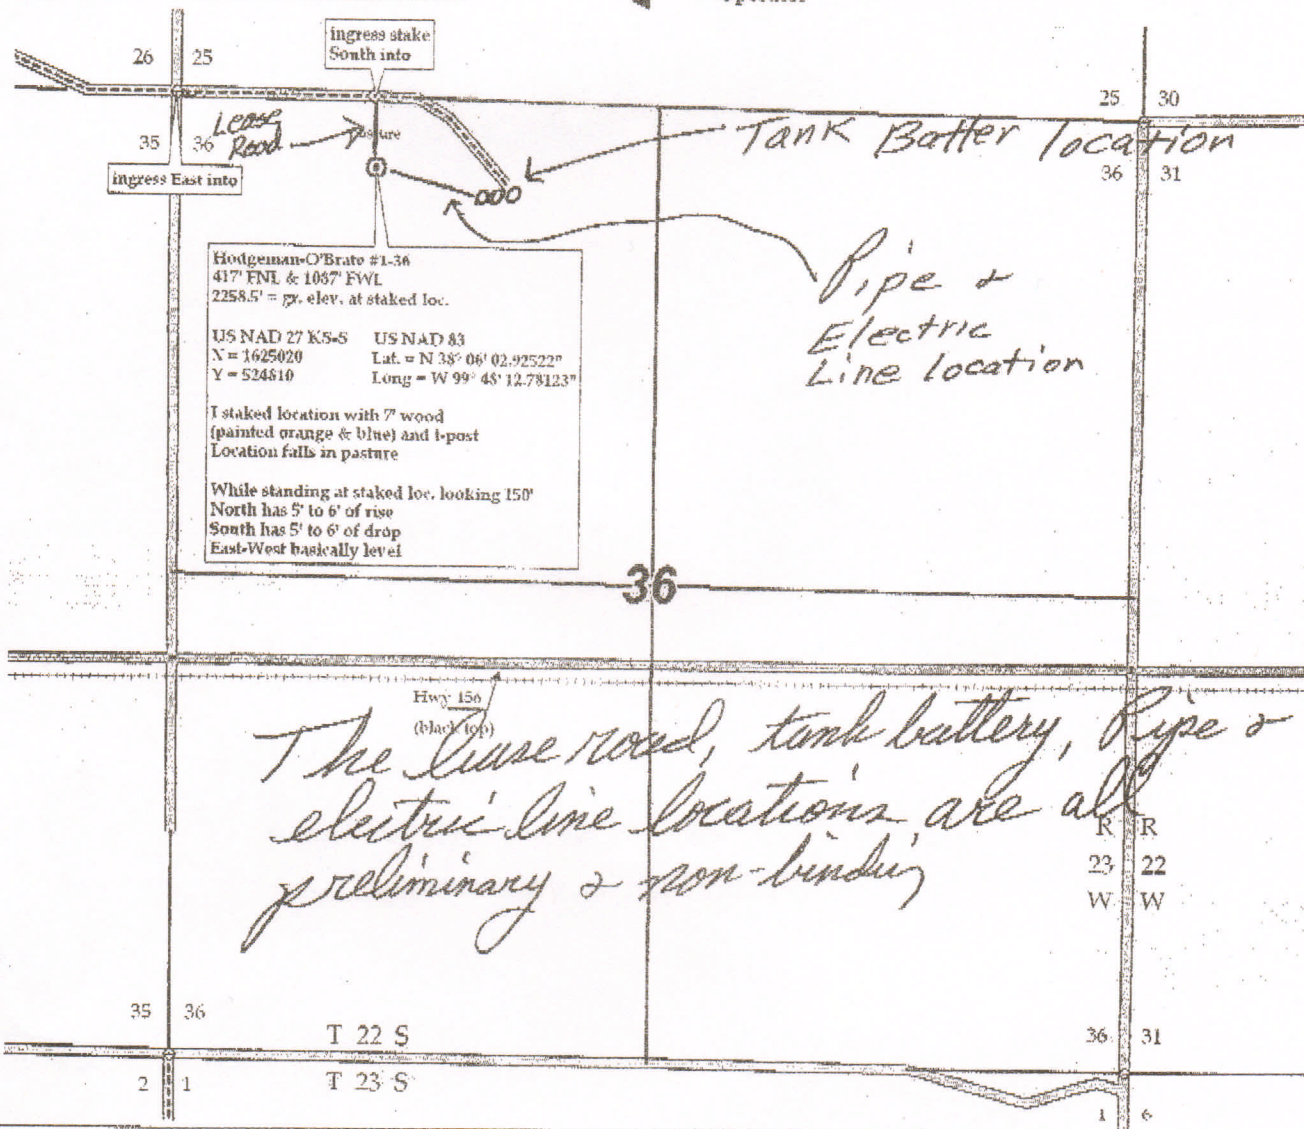 ingress stake
South into
26 25
25 30
Lease
Road
Tank Batter location
35 36
36 31
ingress East into
Pipe &
Electric
Line location
Hodgeman-O'Brate #1-36
417' FNL & 1087' FWL
2258.5' = gr. elev. at staked loc.
US NAD 27 KS-S US NAD 83
X = 1625020 Lat. = N 38° 06' 02.92522"
Y = 524810 Long = W 99° 48' 12.78123"
I staked location with 7' wood
(painted orange & blue) and t-post
Location falls in pasture
While standing at staked loc. looking 150'
North has 5' to 6' of rise
South has 5' to 6' of drop
East-West basically level
36
Hwy 156
(black top)
The lease road, tank battery, Pipe &
electric line locations are all
preliminary & non-binding
R R
23 22
W W
35 36
T 22 S
36 31
2 1
T 23 S
1 6